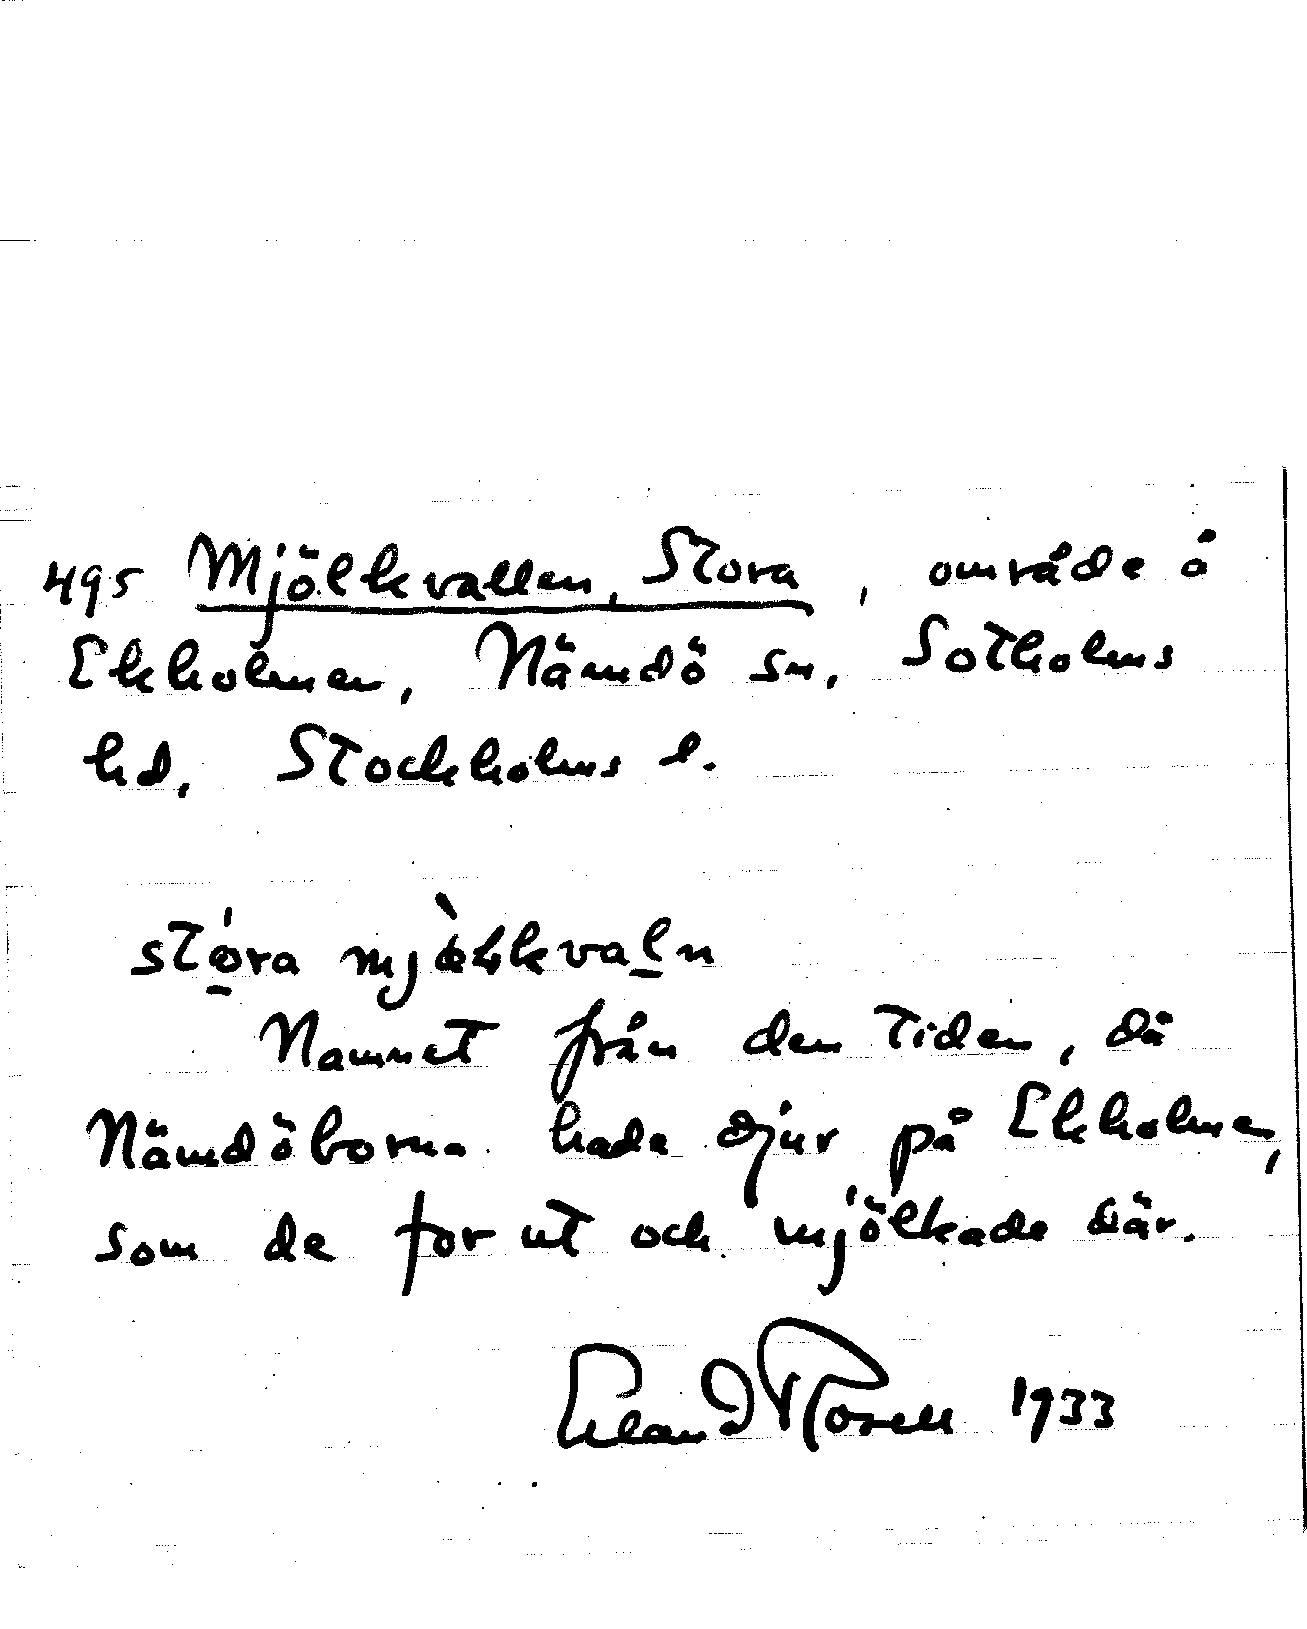 495 Mjölkvallen, Stora, område å
Ekholmen, Nämdö sn, Sotholms
hd, Stockholms l.
stóra mjòlkvaḻn
Namnet från den tiden, då
Nämdöborna hade djur på Ekholmen,
som de for ut och mjölkade där.
Erland Rosell 1933